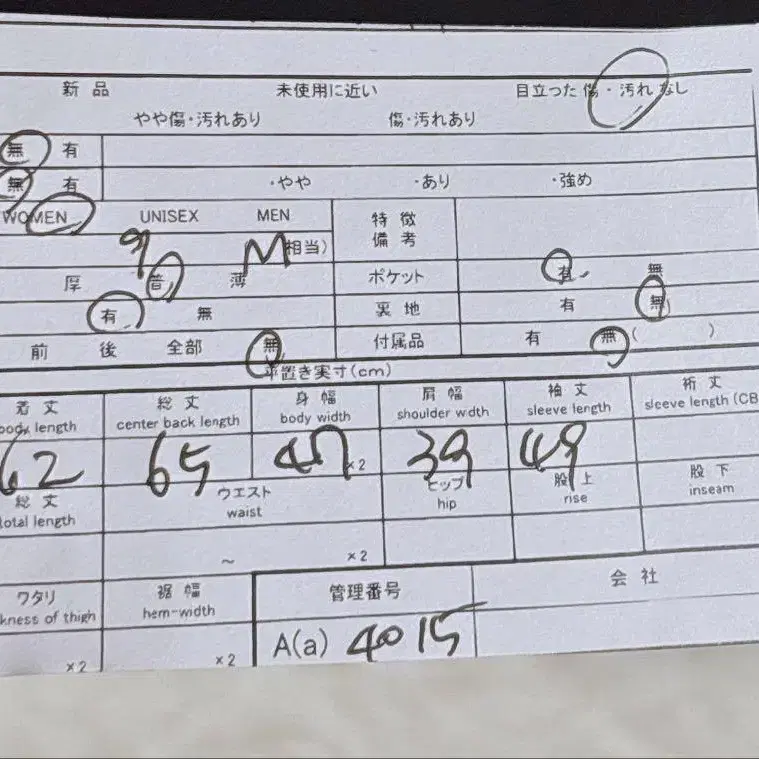 新品 未使用に近い 目立った傷・汚れなし
やや傷・汚れあり 傷・汚れあり
無 有
無 有 ・やや ・あり ・強め
WOMEN UNISEX MEN 特徴
備考
9 M相当)
厚 普 薄 ポケット 有 無
有 無 裏地 有 無
前 後 全部 無 付属品 有 無( )
平置き実寸(cm)
着丈 総丈 身幅 肩幅 袖丈 裄丈
body length center back length body width shoulder wdth sleeve length sleeve length (CB
62 65 47 ×2 39 49
総丈 ウエスト ヒップ 股上 股下
total length waist hip rise inseam
~ ×2
ワタリ 裾幅 管理番号 会社
kness of thigh hem-width
×2 ×2 A(a) 4015